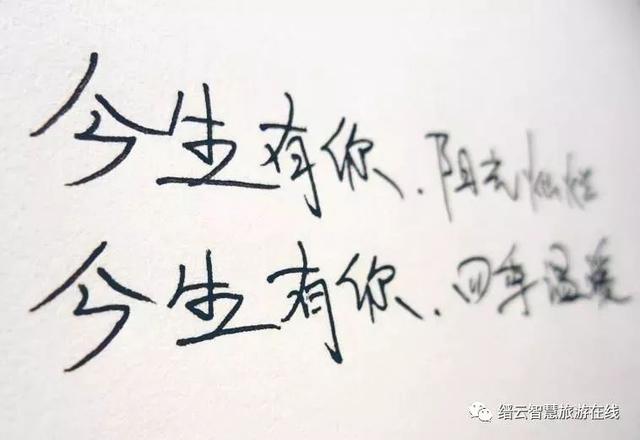 今生有你.阳光灿烂
今生有你.四季温暖
缙云智慧旅游在线